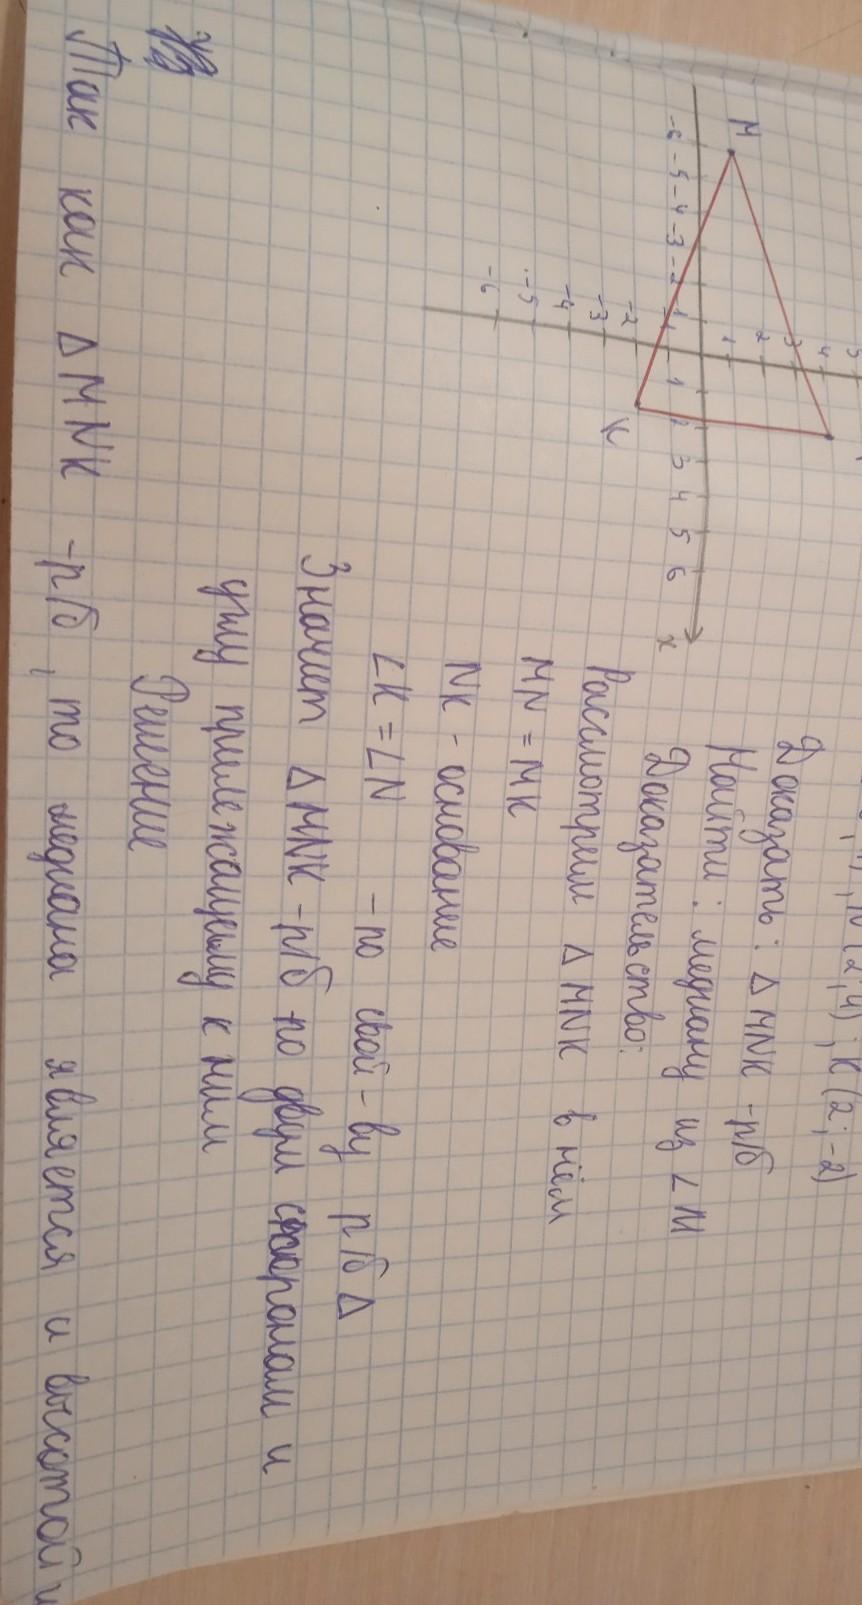 N(2;4); K(2;-2)
Доказать: Δ MNK -р/б
Найти: медиану из ∠M
Доказательство:
Рассмотрим Δ MNK в нём
MN = MK
NK - основание
∠K = ∠N - по свой-ву р/б Δ
Значит Δ MNK -р/б по двум сторонам и
углу прилежащему к ним
Решение
Так как Δ MNK -р/б, то медиана является и высотой и
M
K
x
-6 -5 -4 -3 -2 -1 1 2 3 4 5 6
5
4
3
2
1
-2
-3
-4
-5
-6